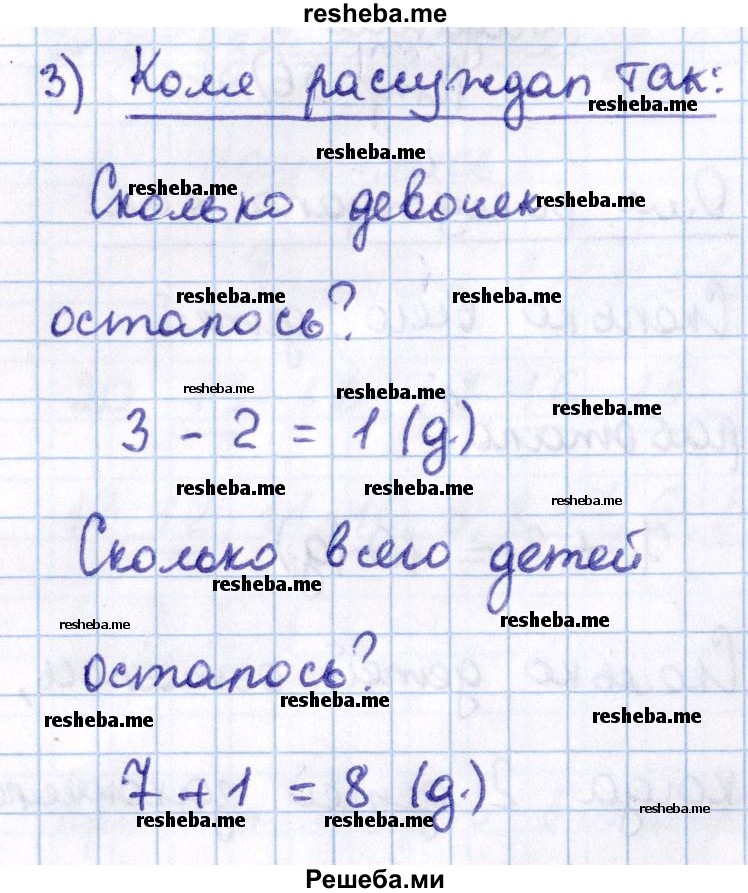 resheba.me
3) Коля рассуждал так:
resheba.me
resheba.me
resheba.me
Сколько девочек
resheba.me
resheba.me resheba.me
осталось?
resheba.me resheba.me resheba.me
3 - 2 = 1 (д.)
resheba.me resheba.me resheba.me
Сколько всего детей
resheba.me
resheba.me resheba.me
осталось?
resheba.me
resheba.me resheba.me
7 + 1 = 8 (д.)
resheba.me resheba.me resheba.me
Решеба.ми